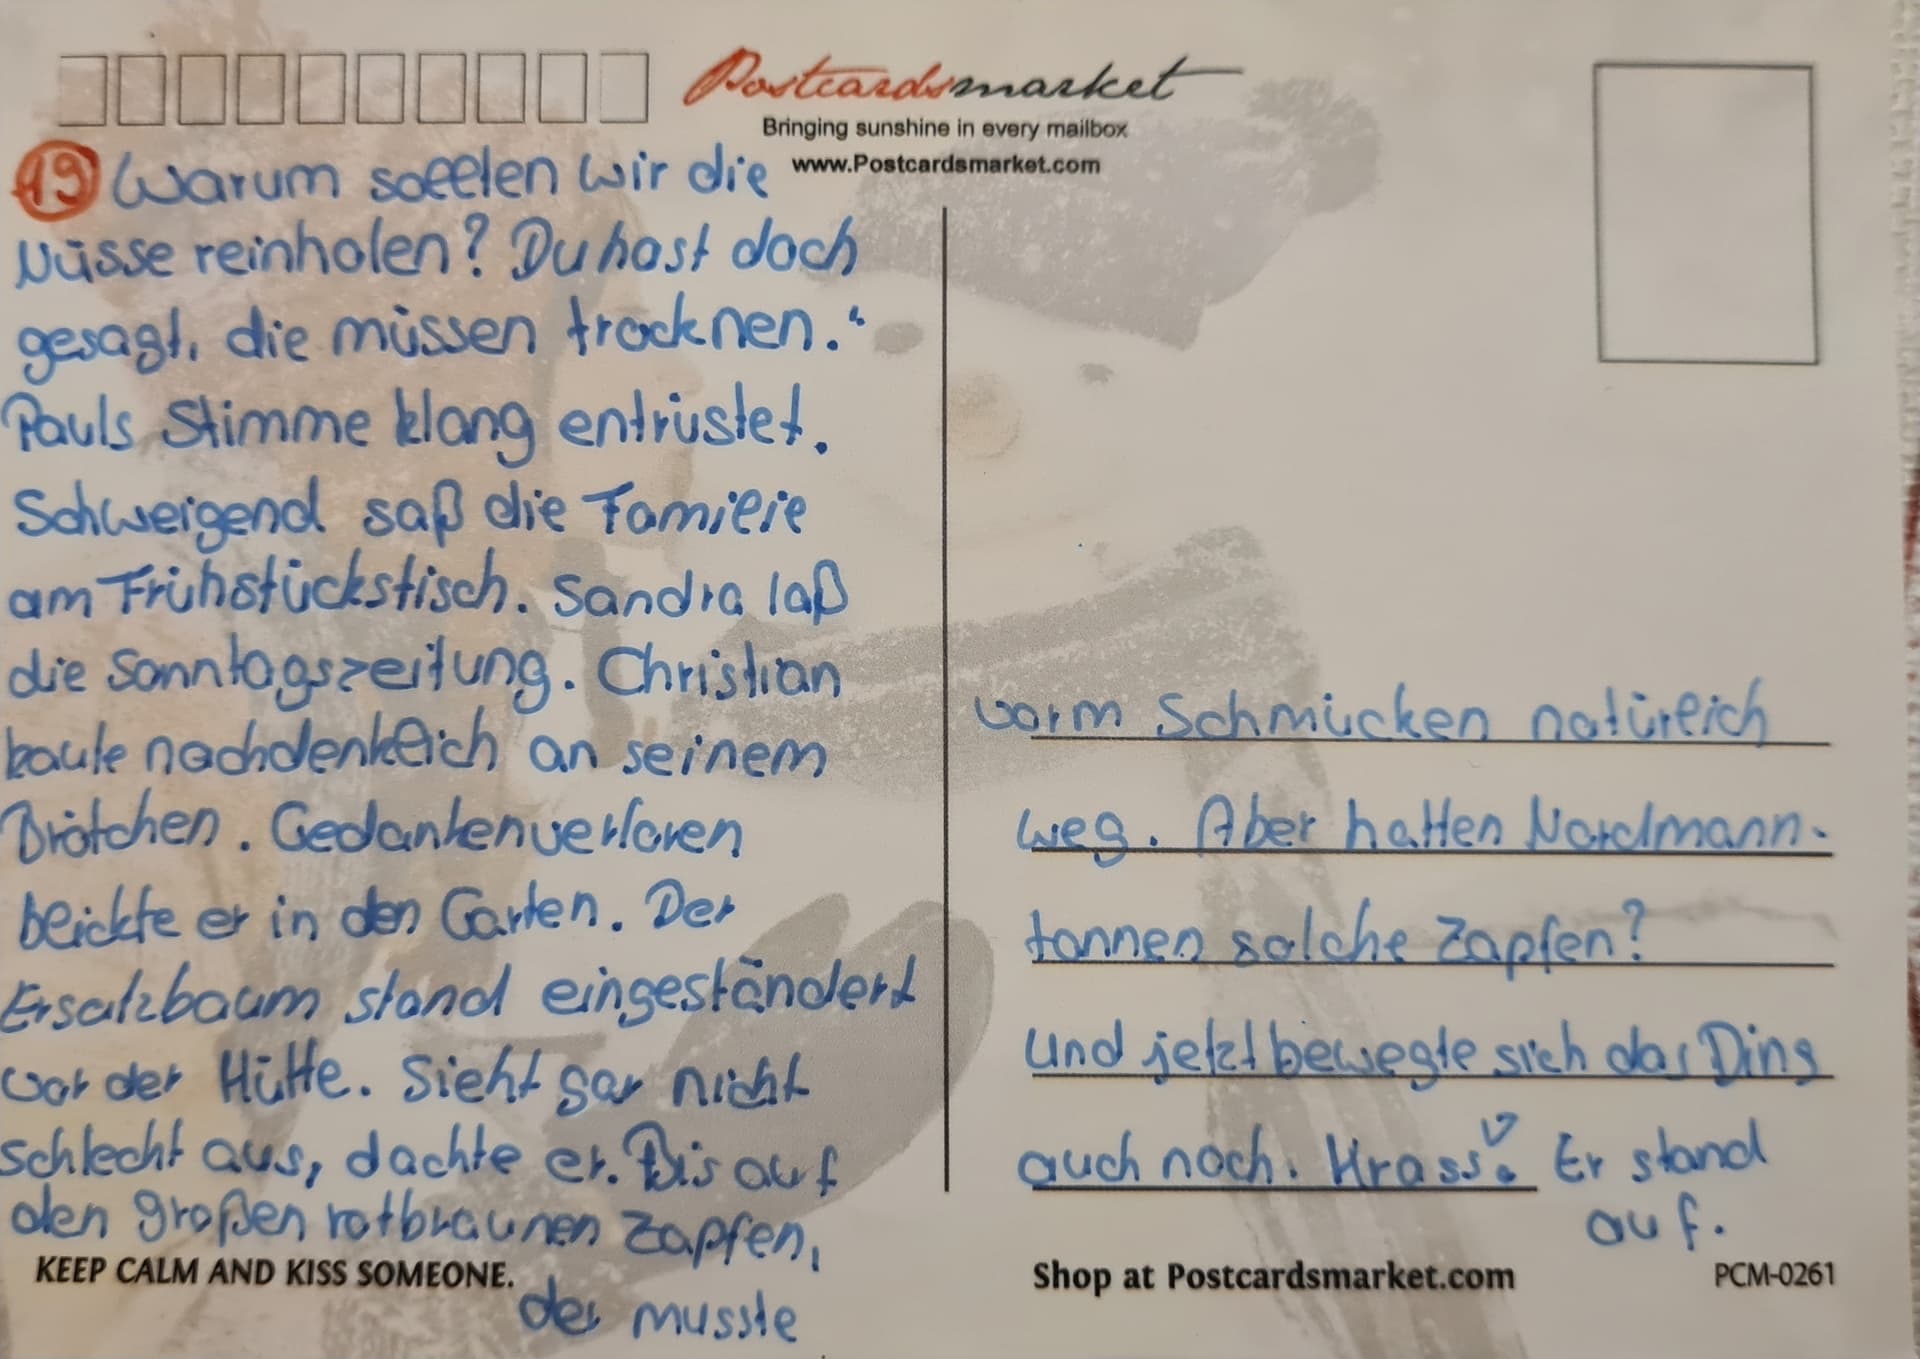 Postcardsmarket
Bringing sunshine in every mailbox
www.Postcardsmarket.com
19 Warum sollen wir die
Nüsse reinholen? Du hast doch
gesagt, die müssen trocknen."
Pauls Stimme klang entrüstet.
Schweigend saß die Familie
am Frühstückstisch. Sandra laß
die Sonntagszeitung. Christian
kaute nachdenklich an seinem
Brötchen. Gedankenverloren
blickte er in den Garten. Der
Ersatzbaum stand eingeständert
vor der Hütte. Sieht gar nicht
schlecht aus, dachte er. Bis auf
den großen rotbraunen Zapfen,
der musste
KEEP CALM AND KISS SOMEONE.
vorm Schmücken natürlich
weg. Aber hatten Nordmann-
tannen solche Zapfen?
Und jetzt bewegte sich das Ding
auch noch. Krass! Er stand
auf.
Shop at Postcardsmarket.com
PCM-0261